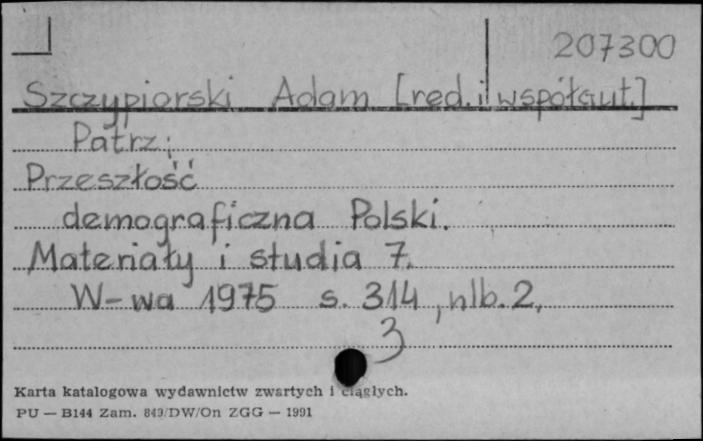 207300
Szczypiorski Adam [red. i współaut.]
Patrz:
Przeszłość
demograficzna Polski.
Materiały i studia 7.
W-wa 1975 s. 314, nlb. 2,
3
Karta katalogowa wydawnictw zwartych i ciągłych.
PU — B144 Zam. 849/DW/On ZGG — 1991